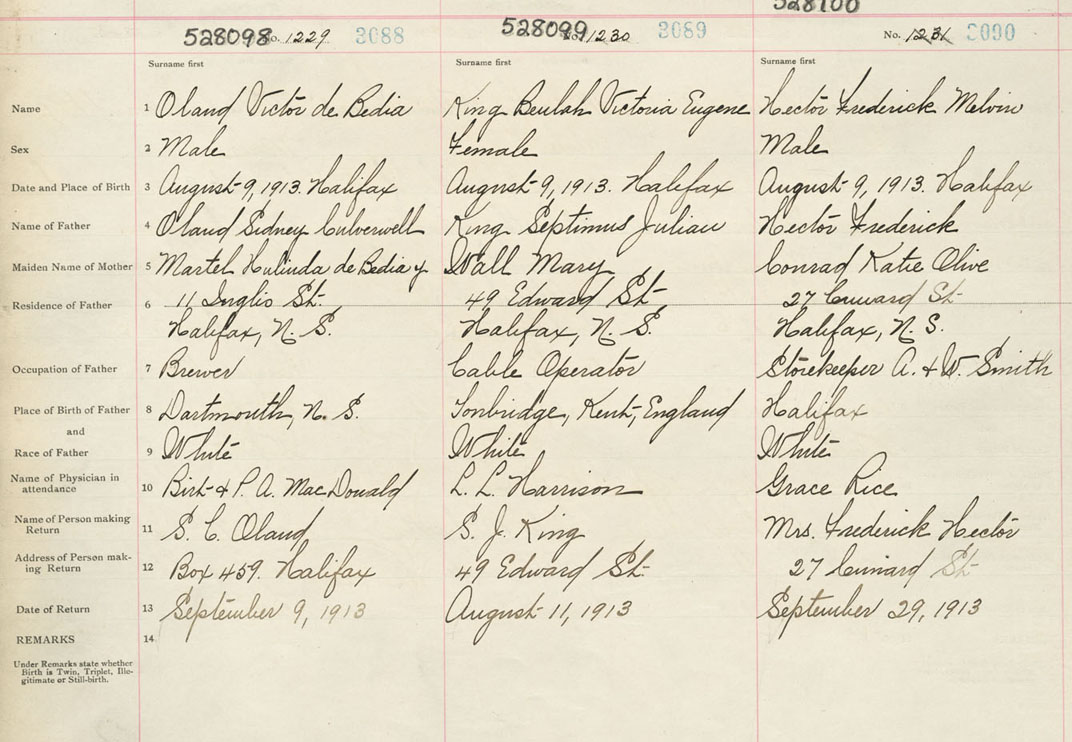 528100
528098 No. 1229 3088
528099 No. 1230 3089
No. 1231 3090
Surname first Surname first Surname first
Name 1 Oland Victor de Bedia King Beulah Victoria Eugene Hector Frederick Melvin
Sex 2 Male Female Male
Date and Place of Birth 3 August 9, 1913. Halifax August 9, 1913. Halifax August 9, 1913. Halifax
Name of Father 4 Oland Sidney Culverwell King Septimus Julian Hector Frederick
Maiden Name of Mother 5 Martel Hulinda de Bedia y Wall Mary Conrad Katie Olive
Residence of Father 6 11 Inglis St. 49 Edward St. 27 Cunard St.
Halifax, N. S. Halifax, N. S. Halifax, N. S.
Occupation of Father 7 Brewer Cable Operator Storekeeper A. & W. Smith
Place of Birth of Father 8 Dartmouth, N. S. Tonbridge, Kent, England Halifax
and
Race of Father 9 White White White
Name of Physician in
attendance 10 Birt & P. A. MacDonald L. L. Harrison Grace Rice
Name of Person making
Return 11 S. C. Oland S. J. King Mrs. Frederick Hector
Address of Person mak-
ing Return 12 Box 459. Halifax 49 Edward St. 27 Cunard St.
Date of Return 13 September 9, 1913 August 11, 1913 September 29, 1913
REMARKS 14
Under Remarks state whether
Birth is Twin, Triplet, Ille-
gitimate or Still-birth.